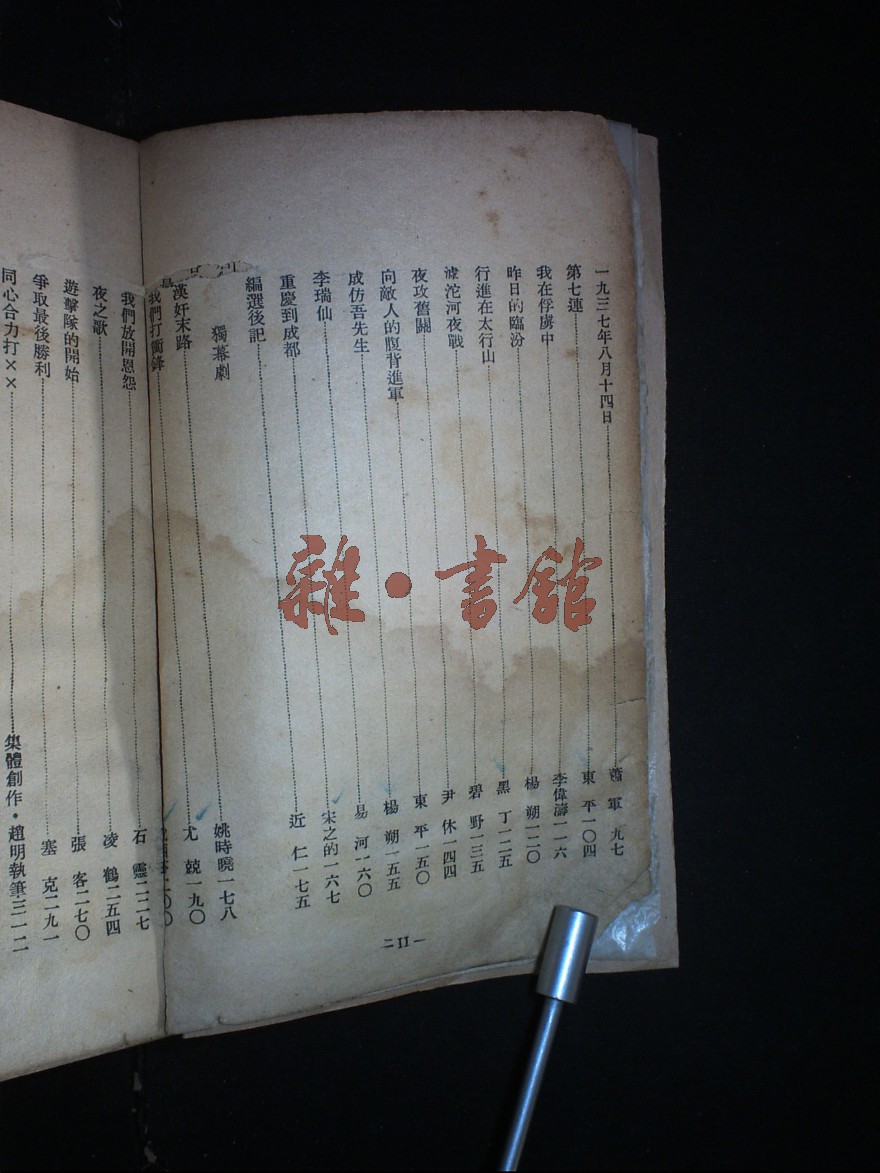 一九三七年八月十四日……蕭 軍 九七
第七連……東 平一〇四
我在俘虜中……李偉濤一一六
昨日的臨汾……楊 朔一二〇
行進在太行山……黑 丁一二五
滹沱河夜戰……碧 野一三五
夜攻舊關……尹 休一四四
向敵人的腹背進軍……東 平一五〇
成仿吾先生……楊 朔一五五
李瑞仙……易 河一六〇
重慶到成都……宋之的一六七
編選後記……近 仁一七五
獨幕劇
姚時曉一七八
漢奸末路……尤 兢一九〇
我們打衝鋒……二〇〇
我們放開恩怨……石 靈二二七
夜之歌……凌 鶴二五四
遊擊隊的開始……張 客二七〇
爭取最後勝利……塞 克二九一
同心合力打××……集體創作・趙明執筆三一二
—II二
雜・書館